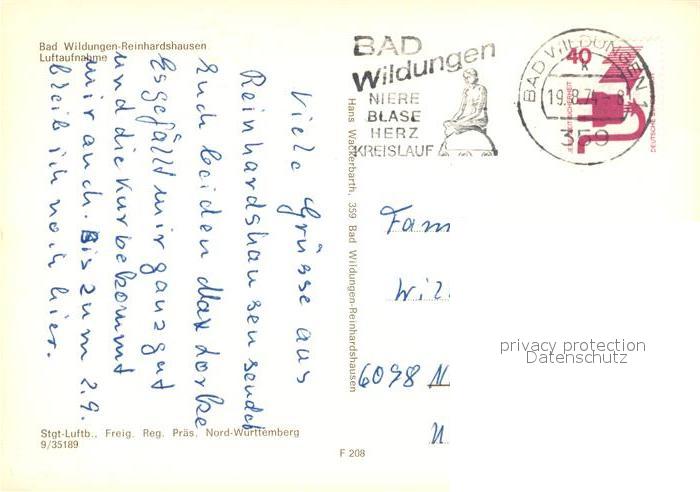 Bad Wildungen-Reinhardshausen
Luftaufnahme
Viele Grüsse aus
Reinhardshausen sendet
Euch beiden Max Lorke
Es gefällt mir ganz gut
und die Kur bekommt
mir auch. Bis zum 2.9.
bleib ich noch hier.
Stgt-Luftb., Freig. Reg. Präs. Nord-Württemberg
9/35189
F 208
Hans Wackerbarth, 359 Bad Wildungen-Reinhardshausen
BAD
Wildungen
NIERE
BLASE
HERZ
KREISLAUF
BAD WILDUNGEN 1
k
19.8.74-8
359
40
Fam
6098
privacy protection
Datenschutz